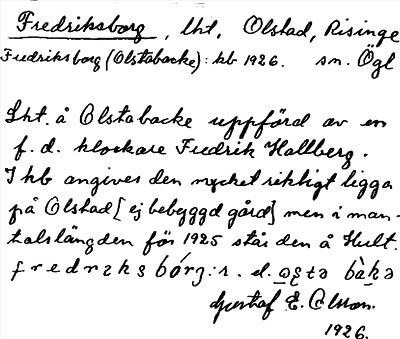 Fredriksborg, lht, Olstad, Risinge
Fredriksborg (Olstabacke): kb 1926. sn. Ögl
Lht. å Olstabacke uppförd av en
f. d. klockare Fredrik Hallberg.
I kb angives den mycket riktigt ligga
på Olstad [ej bebyggd gård] men i man-
talslängden för 1925 står den å Hult.
fredrəksbórg: l. d. ǫstə bàkə
Gustaf E. Olsson.
1926.